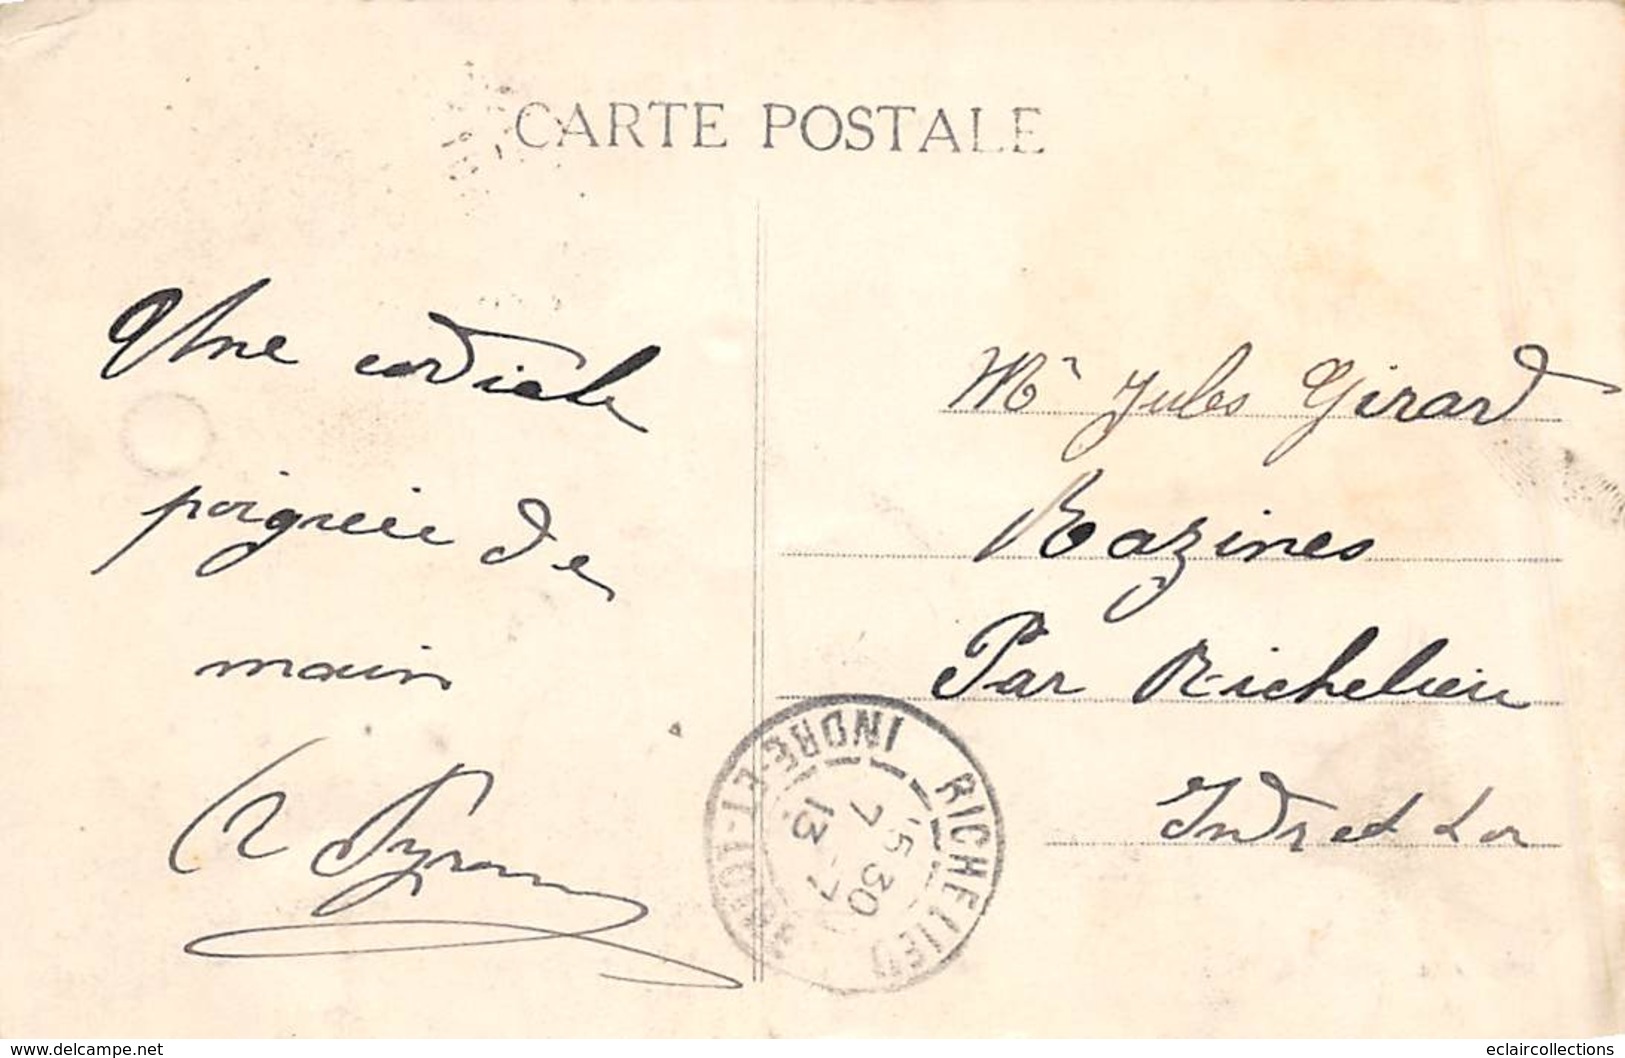 CARTE POSTALE
Une cordiale
poignée de
main
Mr Jules Girard
Razines
Par Richelieu
Indre et Loir
RICHELIEU
INDRE-ET-LOIRE
15 30
7 -7
13
www.delcampe.net
eclaircollections